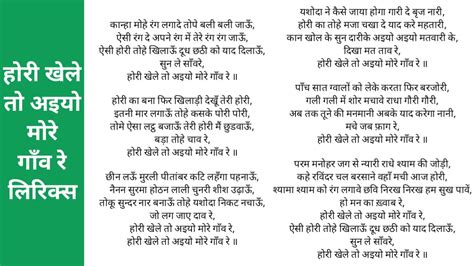 होरी खेले
तो अइयो
मोरे
गाँव रे
लिरिक्स
कान्हा मोहे रंग लगादे तोपे बली बली जाऊँ,
ऐसी रंग दे अपने रंग में तेरे रंग रंग जाऊँ,
ऐसी होरी तोहे खिलाऊँ दूध छठी को याद दिलाऊँ,
सुन ले साँवरे,
होरी खेले तो अइयो मोरे गाँव रे ॥
होरी का बना फिर खिलाड़ी देखूँ तेरी होरी,
इतनी मार लगाऊँ तोहे कसके पोरी पोरी,
तोमे ऐसा लट्ठ बजाऊँ तेरी होरी मैं छुडवाऊँ,
बड़ा तोहे चाव रे,
होरी खेले तो अइयो मोरे गाँव रे ॥
छीन लऊँ मुरली पीतांबर कटि लहँगा पहनाऊँ,
नैनन सुरमा होठन लाली चुनरी शीश उड़ाऊँ,
तोकू सुन्दर नार बनाऊँ तोहे यशोदा निकट नचाऊँ,
जो लग जाए दाव रे,
होरी खेले तो अइयो मोरे गाँव रे ॥
यशोदा ने कैसे जाया होगा गारी दे बृज नारी,
होरी का तोहे मजा चखा दे याद करे महतारी,
कान खोल के सुन दारीके अइयो अइयो मतवारी के,
दिखा मत ताव रे,
होरी खेले तो अइयो मोरे गाँव रे ॥
पाँच सात ग्वालों को लेके करता फिर बरजोरी,
गली गली में शोर मचावे राधा गौरी गौरी,
अब तक तूने की मनमानी अबके याद करेगा नानी,
मचे जब फ़ाग रे,
होरी खेले तो अइयो मोरे गाँव रे ॥
परम मनोहर जग से न्यारी राधे श्याम की जोड़ी,
कहे रविंदर चल बरसाने वहाँ मची आज होरी,
श्यामा श्याम को रंग लगावे छवि निरख निरख हम सुख पावें,
हो मन का ख़्वाब रे,
होरी खेले तो अइयो मोरे गाँव रे,
ऐसी होरी तोहे खिलाऊँ दूध छठी को याद दिलाऊँ,
सुन ले साँवरे,
होरी खेले तो अइयो मोरे गाँव रे ॥